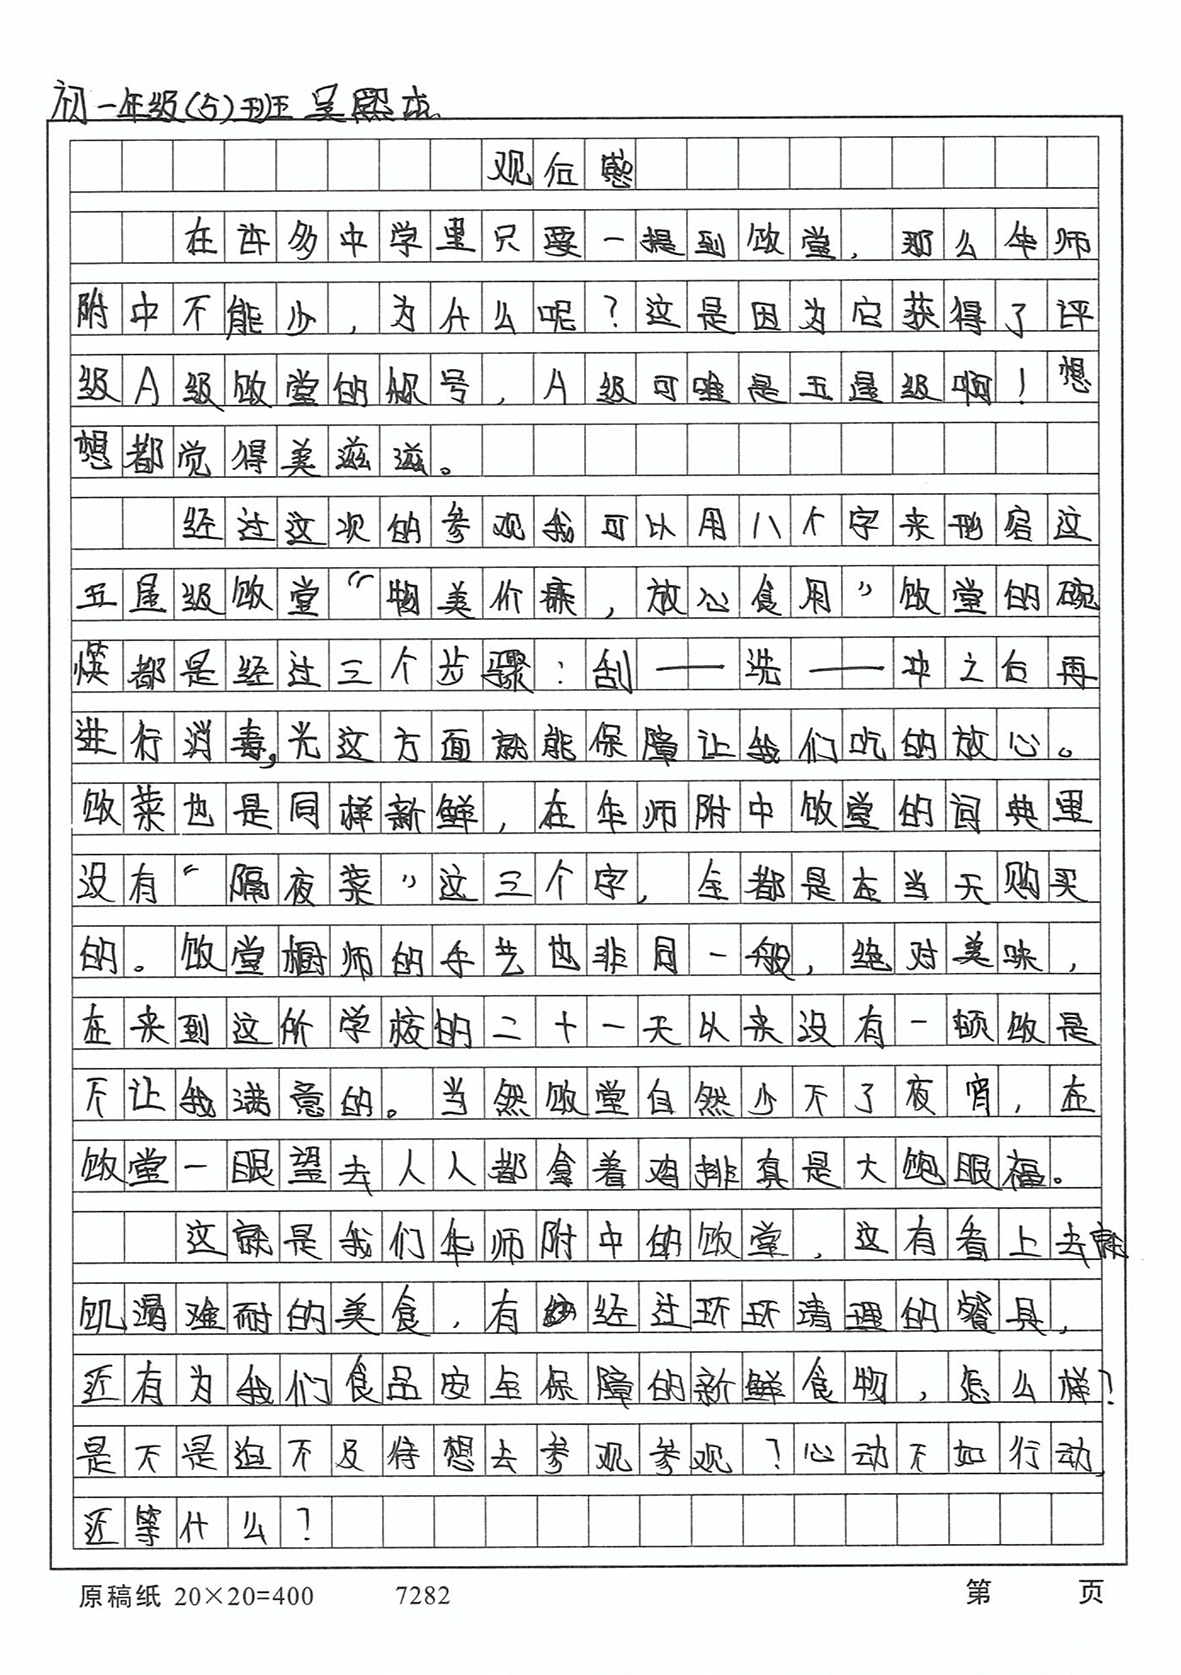 初一年级(5)班吴熙
观后感
在许多中学里只要一提到饭堂，那么华师
附中不能少，为什么呢？这是因为它获得了评
级A级饭堂的称号，A级可唯是五星级啊！想
想都觉得美滋滋。
经过这次的参观我可以用八个字来形容这
五星级饭堂“物美价廉，放心食用”饭堂的碗
筷都是经过三个步骤：刮——洗——冲之后再
进行消毒，光这方面就能保障让我们吃的放心。
饭菜也是同样新鲜，在华师附中饭堂的词典里
没有“隔夜菜”这三个字，全都是在当天购买
的。饭堂橱师的手艺也非同一般，绝对美味，
在来到这所学校的二十一天以来没有一顿饭是
不让我满意的。当然饭堂自然少不了夜宵，在
饭堂一眼望去人人都拿着鸡排真是大饱眼福。
这就是我们华师附中的饭堂，这有看上去就
饥渴难耐的美食，有经过环环清理的餐具，
还有为我们食品安全保障的新鲜食物，怎么样？
是不是迫不及待想去参观参观？心动不如行动，
还等什么？
原稿纸 20×20=400 7282 第 页